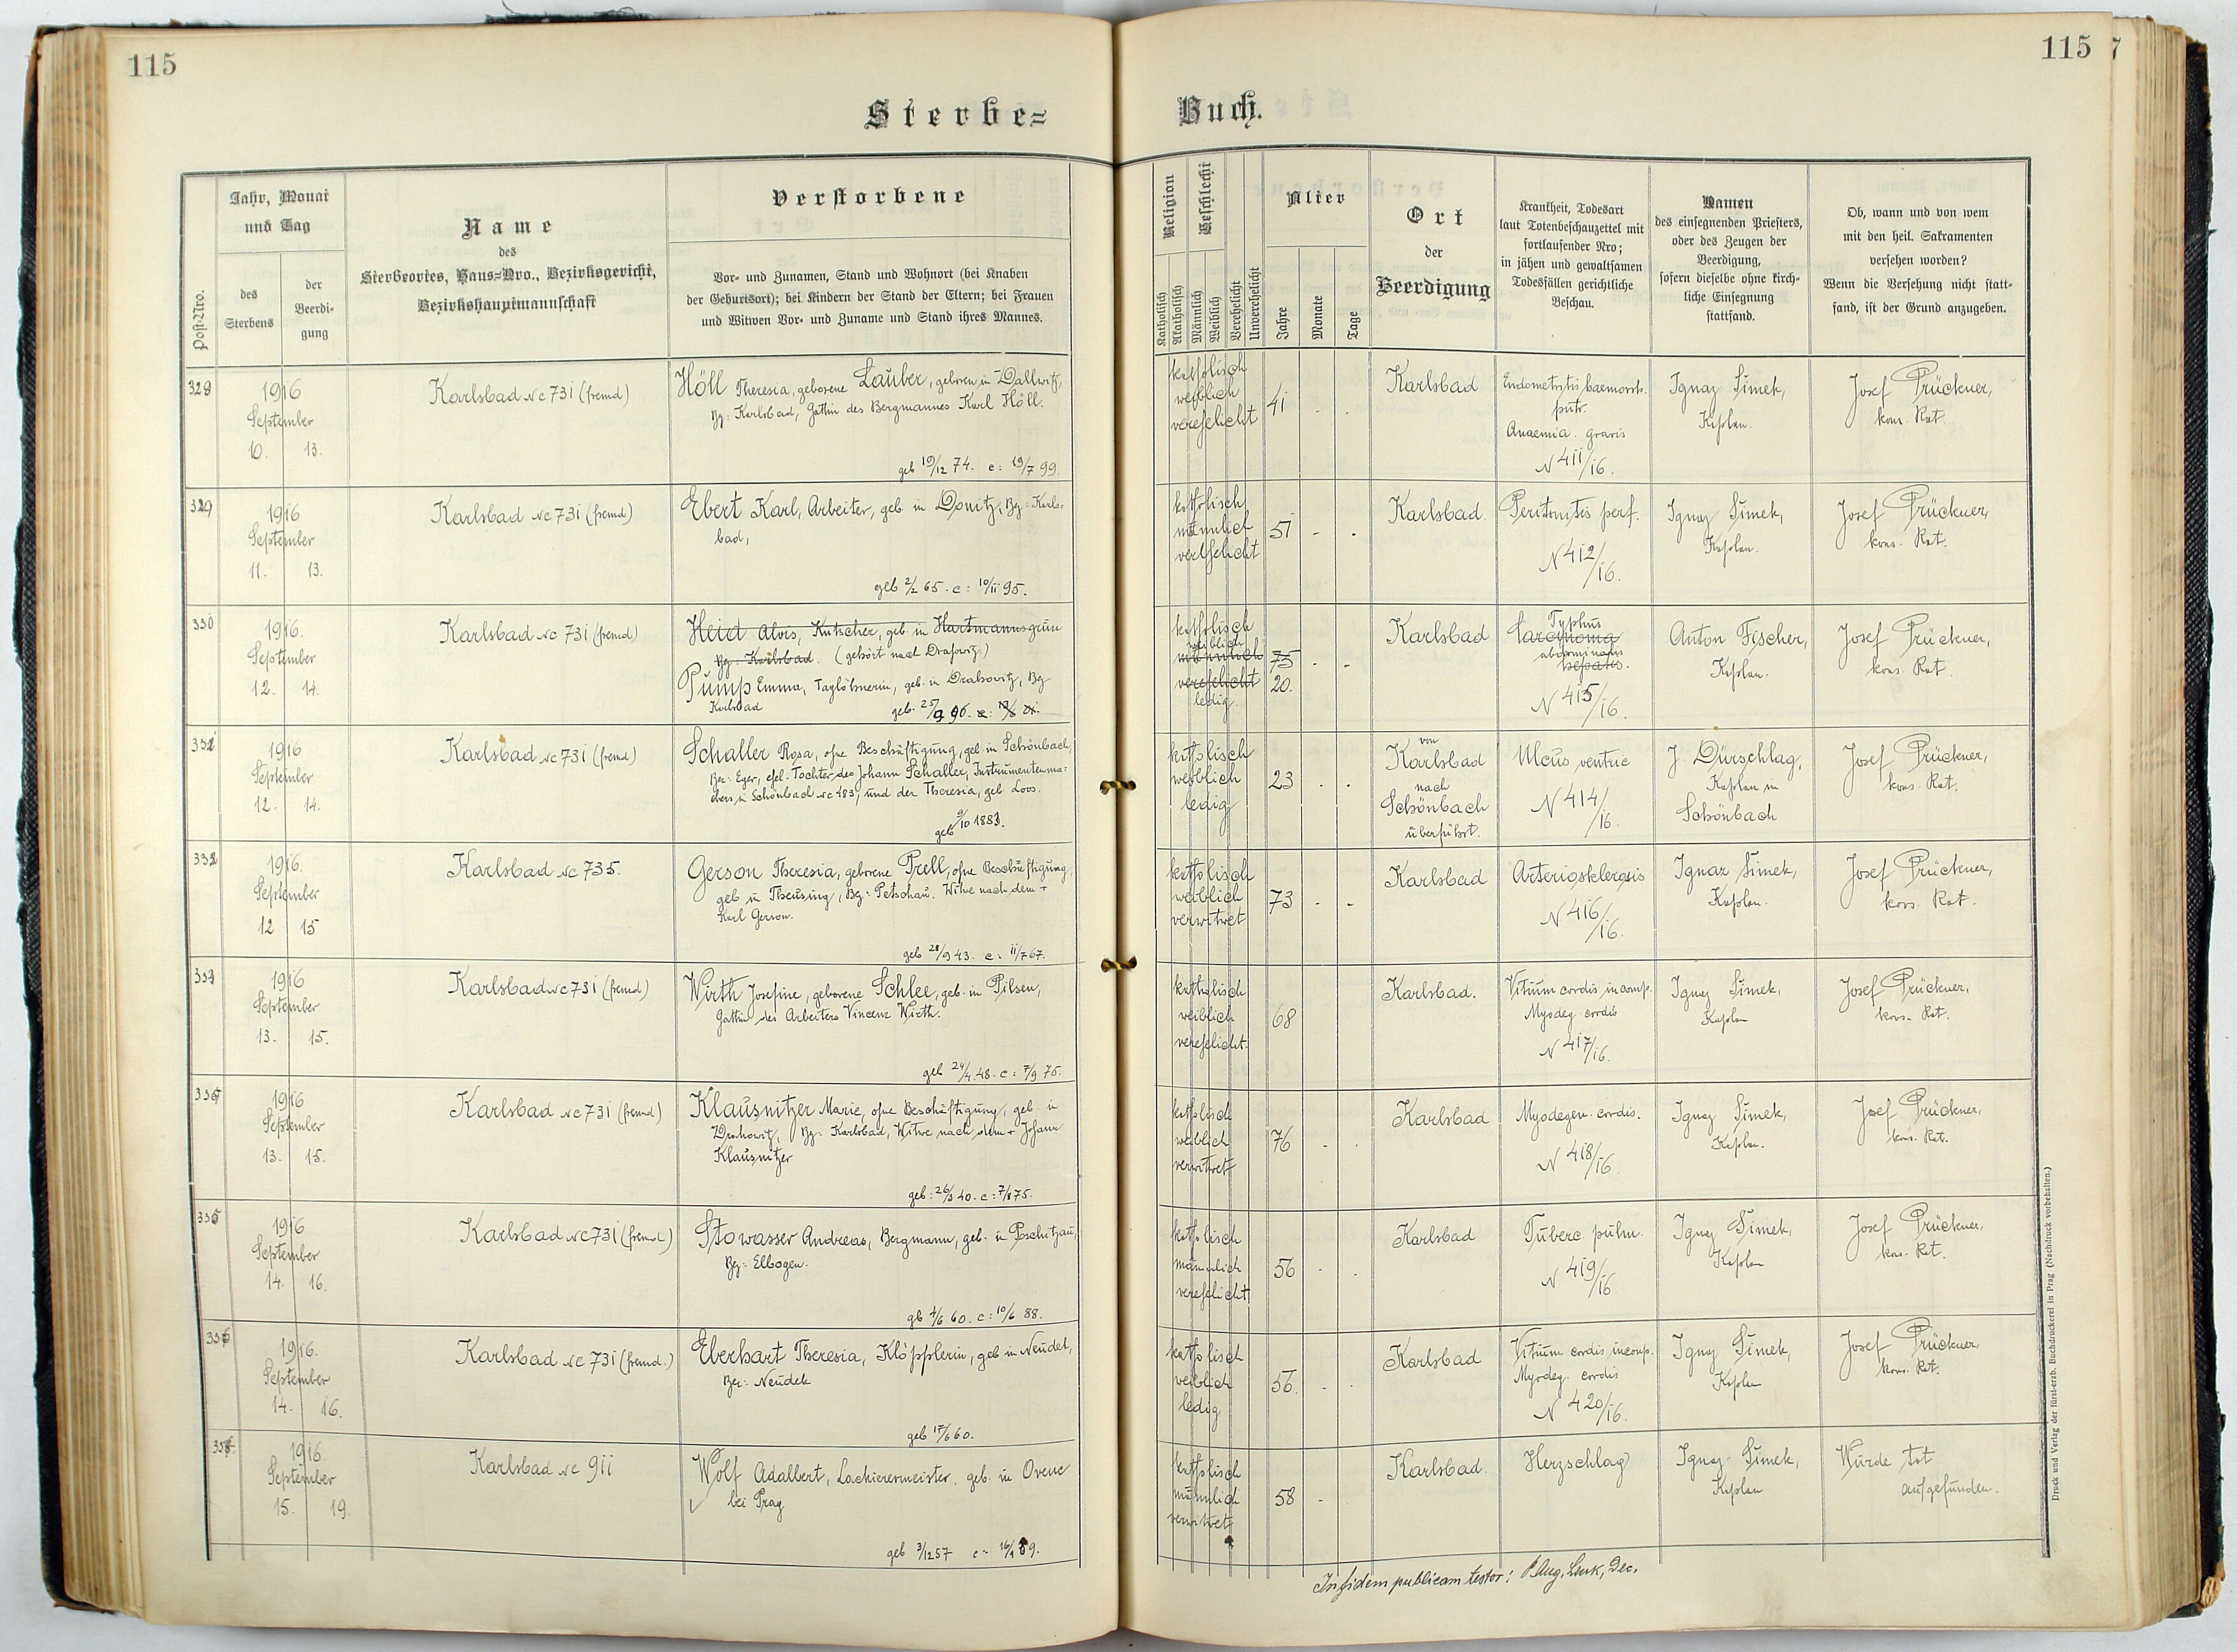 115
115
7
Sterbe=
Buch.
Post-Nro.
Jahr, Monat
und Tag
des
Sterbens
der
Beerdi-
gung
Name
des
Sterbeortes, Haus=Nro., Bezirksgericht,
Bezirkshauptmannschaft
Verstorbene
Vor- und Zunamen, Stand und Wohnort (bei Knaben
der Geburtsort); bei Kindern der Stand der Eltern; bei Frauen
und Witwen Vor- und Zuname und Stand ihres Mannes.
Religion
Katholisch
Akatholisch
Geschlecht
Männlich
Weiblich
Verehelicht
Unverehelicht
Alter
Jahre
Monate
Tage
Ort
der
Beerdigung
Krankheit, Todesart
laut Totenbeschauzettel mit
fortlaufender Nro;
in jähen und gewaltsamen
Todesfällen gerichtliche
Beschau.
Namen
des einsegnenden Priesters,
oder des Zeugen der
Beerdigung,
sofern dieselbe ohne kirch-
liche Einsegnung
stattfand.
Ob, wann und von wem
mit den heil. Sakramenten
versehen worden?
Wenn die Versehung nicht statt-
fand, ist der Grund anzugeben.
328
1916
September
10. 13.
Karlsbad Nc 731 (fremd)
Höll Theresia, geborene Lauber, geboren in Dallwitz,
Bg: Karlsbad, Gattin des Bergmannes Karl Höll.
geb 19/12 74. c: 19/7 99.
katholisch
weiblich
verehelicht
41 . .
Karlsbad
Endometritis haemorrh.
putr.
Anaemia gravis
N 411/16.
Ignaz Simek,
Kaplan.
Josef Prückner,
kons. Rat.
329
1916
September
11. 13.
Karlsbad Nc 731 (fremd)
Ebert Karl, Arbeiter, geb. in Donitz, Bg: Karls=
bad,
geb 2/2 65. c: 10/11 95.
katholisch
männlich
verehelicht
51 - .
Karlsbad.
Peritonitis perf.
N 412/16.
Ignaz Simek,
Kaplan.
Josef Prückner,
kons. Rat.
330
1916.
September
12. 14.
Karlsbad Nc 731 (fremd)
Heid Alois, Kutscher, geb. in Hartmannsgrün
Bg: Karlsbad. (gehört nach Drahowitz.)
Pump Emma, Taglöhnerin, geb. in Drahowitz, Bg
Karlsbad
geb. 25/9 96.
katholisch
weiblich
männlich
verehelicht
ledig.
75
20. - -
Karlsbad
Typhus
Carcinoma
abdominalis
hepatis.
N 415/16.
Anton Fischer,
Kaplan.
Josef Prückner,
kons. Rat.
331
1916
September
12. 14.
Karlsbad Nc 731 (fremd)
Schaller Rosa, ohne Beschäftigung, geb. in Schönbach,
Bez: Eger, ehel. Tochter des Johann Schaller, Instrumentenma=
chers in Schönbach Nc 183, und der Theresia, geb. Loos.
geb 9/10 1883.
katholisch
weiblich
ledig
23 . .
von
Karlsbad
nach
Schönbach
überführt.
Ulcus ventric
N 414/16.
J. Dürschlag,
Kaplan in
Schönbach
Josef Prückner,
kons. Rat.
332
1916.
September
12 15
Karlsbad Nc 735.
Gerson Theresia, geborene Prell, ohne Beschäftigung,
geb in Theusing, Bg: Petschau. Witwe nach dem +
Karl Gerson.
geb 28/9 43. c: 11/7 67.
katholisch
weiblich
verwitwet
73 - -
Karlsbad
Arteriosklerosis
N 416/16.
Ignaz Simek,
Kaplan.
Josef Prückner,
kons. Rat.
333
1916
September
13. 15.
Karlsbad Nc 731 (fremd)
Wirth Josefine, geborene Schlee, geb. in Pilsen,
Gattin des Arbeiters Vincenz Wirth.
geb 24/4 48. c: 7/9 75.
katholisch
weiblich
verehelicht.
68
Karlsbad.
Vitium cordis incomp.
Myodeg. cordis
N 417/16.
Ignaz Simek,
Kaplan
Josef Prückner,
kons. Rat.
1916
September
13. 15.
Karlsbad Nc 731 (fremd)
Klausnitzer Marie, ohne Beschäftigung, geb. in
Drahowitz, Bg: Karlsbad, Witwe nach dem + Johann
Klausnitzer
geb: 26/3 40. c: 7/1 75.
katholisch
weiblich
verwitwet
76 . .
Karlsbad
Myodegen. cordis.
N 418/16
Ignaz Simek,
Kaplan.
Josef Prückner,
kons. Rat.
335
1916
September
14. 16.
Karlsbad Nc 731 (fremd)
Stowasser Andreas, Bergmann, geb. in Poschitzau,
Bez: Elbogen.
geb 4/6 60. c: 10/6 88.
katholisch
männlich
verehelicht
56 . .
Karlsbad
Tuberc. pulm.
N 419/16
Ignaz Simek,
Kaplan
Josef Prückner,
kons. Rat.
336
1916.
September
14. 16.
Karlsbad Nc 731 (fremd.)
Eberhart Theresia, Klöpplerin, geb in Neudek,
Bez: Neudek
geb 17/6 60.
katholisch
weiblich
ledig
56. . .
Karlsbad
Vitium cordis incomp.
Myodeg. cordis
N 420/16.
Ignaz Simek,
Kaplan
Josef Prückner,
kons. Rat.
1916.
September
15. 19.
Karlsbad Nc 911
Wolf Adalbert, Lackierermeister, geb. in Ovenc
bei Prag
geb 3/12 57
katholisch
männlich
verwitwet
58 -
Karlsbad.
Herzschlag
Ignaz Simek,
Kaplan
Wurde tot
aufgefunden.
In fidem publicam testor: P. Aug. Lenk, Dec.
Druck und Verlag der fürst-erzb. Buchdruckerei in Prag (Nachdruck vorbehalten.)